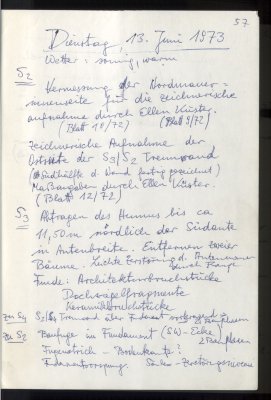 57
Dienstag, 13. Juni 1973
Wetter: sonnig, warm
S2
Vermessung der Nordmauer =
innenseite für die zeichnerische
aufnahme durch Ellen Küster.
(Blatt 10/72) (Blatt 9/72)
Zeichnerische Aufnahme der
Ostseite der S3/S2 Trennwand
(Südhälfte d. Wand fertig gezeichnet)
Maßangaben durch Ellen Küster.
(Blatt 12/72)
S3
Abtragen des Humus bis ca
11,50 m nördlich der Südkante
in Antenbreite. Entfernen zweier
Bäume. Leichte Zerstörung d.
durch
Funde: Architekturbruchstücke
Dachziegelfragmente
Keramikbruchstücke
zu S4 Trennwand über Fundament
zu S2 Baufuge im Fundament (SW-Ecke)
Fugenstrich - ?
Fundamentvorsprung